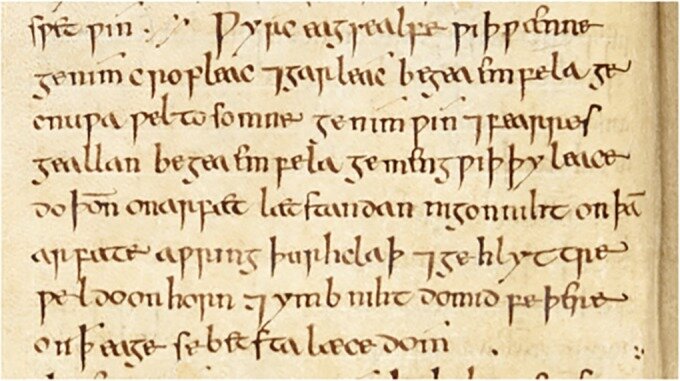 sƿet ƿin ⁏ Ƿyrc eagsealfe ƿiþƿænne
genim cropleac ⁊garleac begea emfela ge
cnuƿa ƿel tosomne genim ƿin ⁊ fearres
geallan begea emfela gemeng ƿiþ þy leace
do þoñ onarfæt læt standan nigon niht on þā
arfæte aƿring þurh claþ ⁊gehlyttre
ƿel do on horn ⁊ymb niht do mid feþre
on ꝥ eage se betsta læce dom